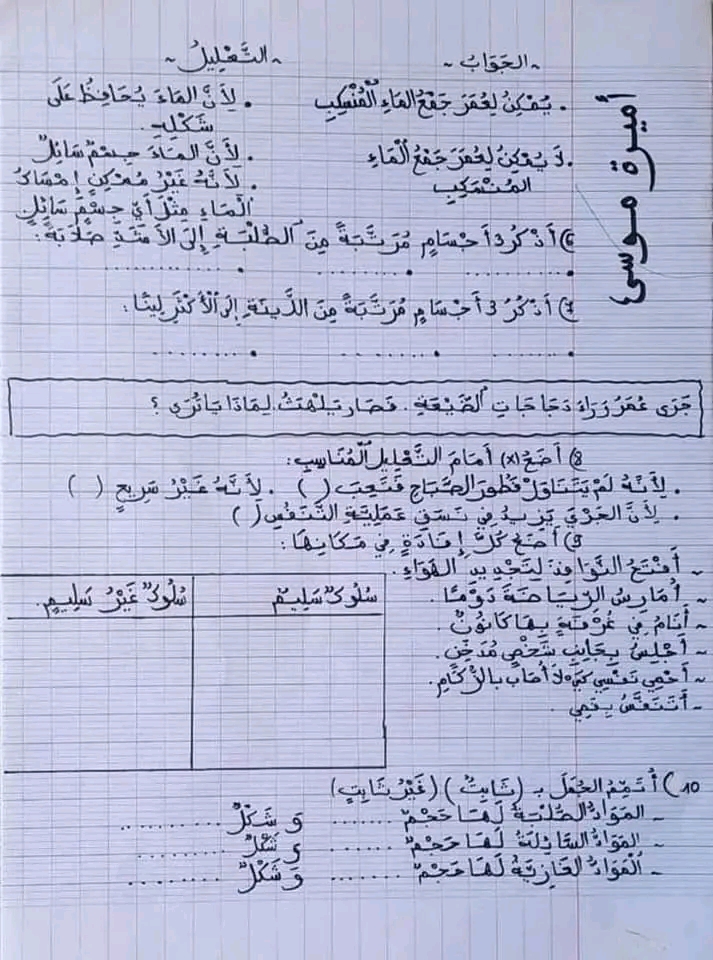 ~ الجَوَابُ ~ ~ التَّعْلِيلُ ~
. يُمْكِنُ لِعُمَرَ جَمْعُ المَاءِ الْمُنْسَكِبِ . لِأَنَّ المَاءَ يُحَافِظُ عَلَى
شَكْلِهِ.
. لَا يُمْكِنُ لِعُمَرَ جَمْعُ الْمَاءِ . لِأَنَّ المَاءَ جِسْمٌ سَائِلٌ
المُنْسَكِبِ . لِأَنَّهُ غَيْرُ مُمْكِنٍ إِمْسَاكُ
الْمَاءِ مِثْلَ أَيِّ جِسْمٍ سَائِلٍ
أميرة موسى
6) أَذْكُرُ 3 أَجْسَامٍ مُرَتَّبَةً مِنَ الصُّلْبَةِ إِلَى الأَشَدِّ صَلَابَةً:
. ......... . ......... . .........
7) أَذْكُرُ 3 أَجْسَامٍ مُرَتَّبَةً مِنَ اللَّيِّنَةِ إِلَى الْأَكْثَرِ لِينًا:
. ......... . ......... . .........
جَرَى عُمَرُ وَرَاءَ دَجَاجَاتِ الضَّيْعَةِ. فَصَارَ يَلْهَثُ. لِمَاذَا يَا تُرَى ؟
8) أَضَعُ (x) أَمَامَ التَّعْلِيلِ الْمُنَاسِبِ:
. لِأَنَّهُ لَمْ يَتَنَاوَلْ فَطُورَ الصَّبَاحِ فَتَعِبَ ( ) . لِأَنَّهُ غَيْرُ سَرِيعٍ ( )
. لِأَنَّ الجَرْيَ يَزِيدُ فِي نَسَقِ عَمَلِيَّةِ التَّنَفُّسِ ( )
9) أَضَعُ كُلَّ إِفَادَةٍ فِي مَكَانِهَا:
- أَفْتَحُ النَّوَافِذَ لِتَجْدِيدِ الهَوَاءِ.
- أُمَارِسُ الرِّيَاضَةَ دَوْمًا.
- أَنَامُ فِي غُرْفَةٍ بِهَا كَانُونٌ.
- أَجْلِسُ بِجَانِبِ شَخْصٍ مُدَخِّنٍ.
- أَحْمِي نَفْسِي كَيْ لَا أُصَابَ بِالزُّكَامِ.
- أَتَنَفَّسُ بِفَمِي.
سُلُوكٌ سَلِيمٌ سُلُوكٌ غَيْرُ سَلِيمٍ.
10) أُتَمِّمُ الجُمَلَ بـ (ثَابِتٌ) (غَيْرُ ثَابِتٍ)
- المَوَادُّ الصُّلْبَةُ لَهَا حَجْمٌ ........ وَ شَكْلٌ ............
- المَوَادُّ السَّائِلَةُ لَهَا حَجْمٌ ........ وَ شَكْلٌ ............
- الْمَوَادُّ الغَازِيَّةُ لَهَا حَجْمٌ ........ وَ شَكْلٌ ............